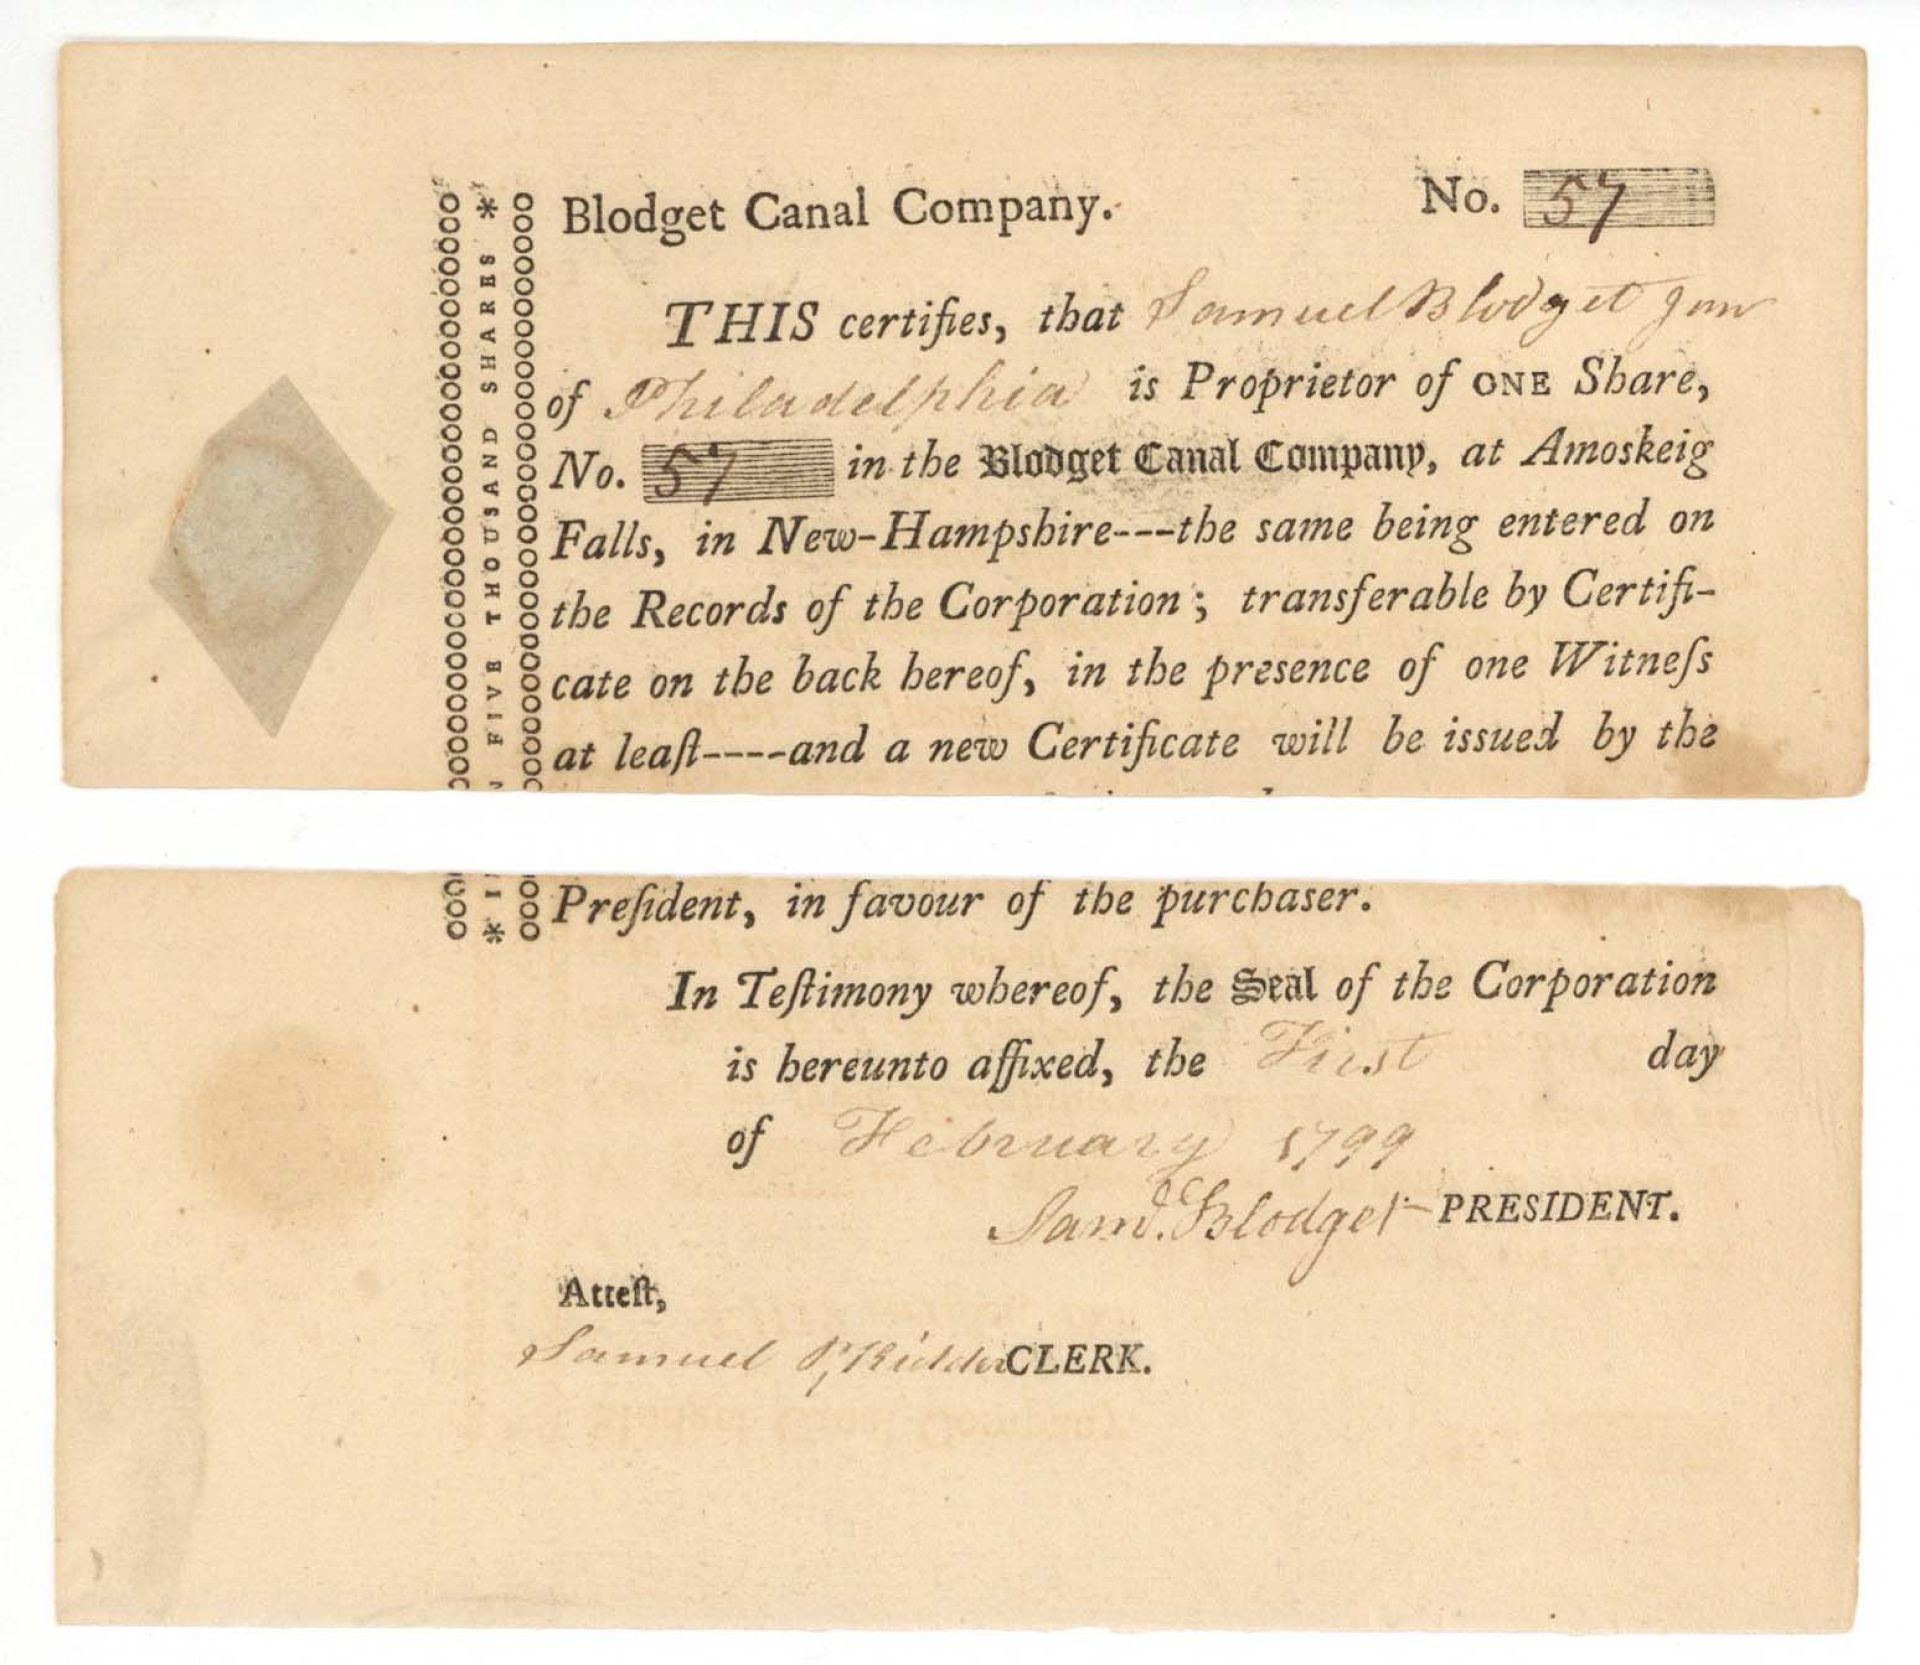 Blodget Canal Company. No. 57
THIS certifies, that Samuel Blodget Jun
of Philadelphia is Proprietor of ONE Share,
No. 57 in the Blodget Canal Company, at Amoskeig
Falls, in New-Hampshire---the same being entered on
the Records of the Corporation; transferable by Certifi-
cate on the back hereof, in the presence of one Witneſs
at leaſt----and a new Certificate will be issued by the
* FIVE THOUSAND SHARES *
Preſident, in favour of the purchaser.
In Teſtimony whereof, the Seal of the Corporation
is hereunto affixed, the First day
of February 1799
Sam'l. Blodget PRESIDENT.
Atteſt,
Samuel P. Kidder CLERK.